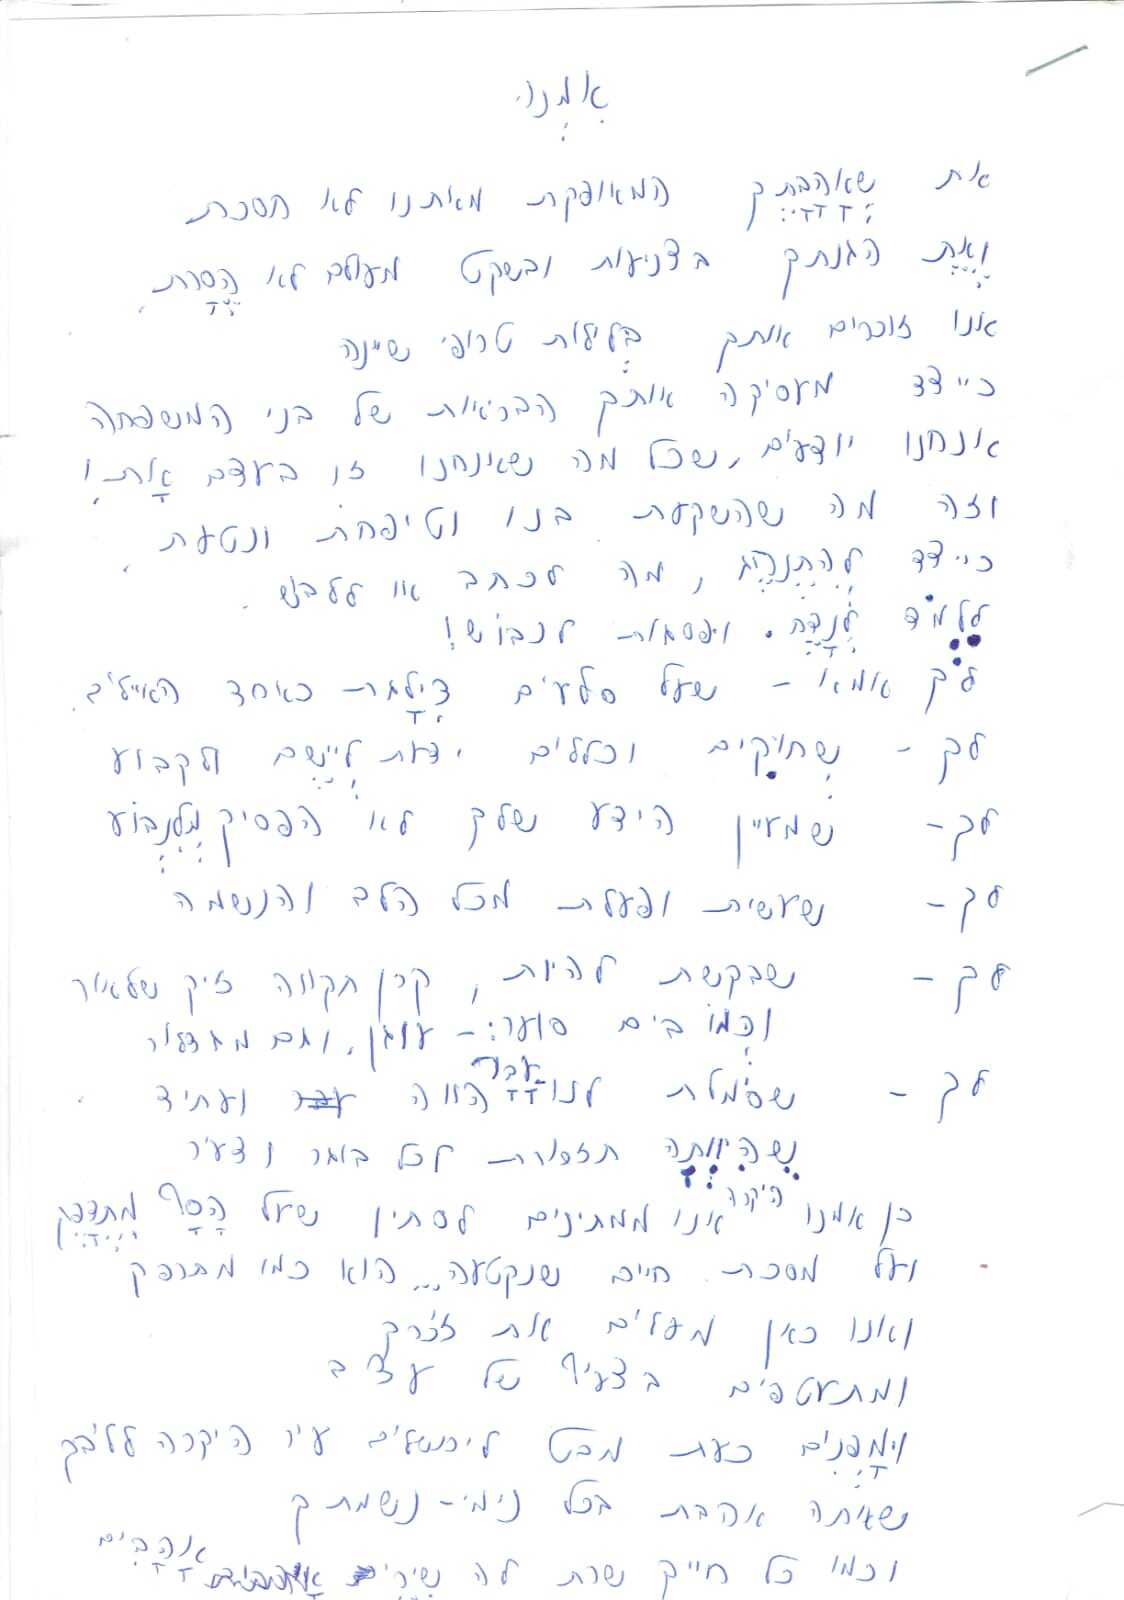 אִמֵנוּ.
את שֶאַהֲבָתֵך המאופקת מאיתנו לא חסכת
וְאֶת הגנתך בצניעות ובשקט מעולם לא הֵסַרְת.
אנו זוכרים אותך בְּלילות טרופי שיינה
כייצד מעסיקה אותך הבריאות של בני המשפחה
אנחנו יודעים, שכל מה שאנחנו זו בעצם אַת,
וזה מה שהשקעת בנו וטיפחת ונטעת.
כייצד לְהִתְנַהֵג, מה לכתב או ללבוש.
ללמד לְנַדֵּחַ. ופסגות לכבוש!
לך אמא - שעל סלעים דִילַגת כאחד האיילים.
לך - שחוקים וכללים ידעת לְיַישֵם ולקבוע
לך - שמעיין הידע שלך לא הפסיק מִלִּנְבּוֹעַ
לך - שעשית ופעלת מכל הלב והנשמה
לך - שבקשת להיות, קרן תקווה זיק של אור
וכְּמוֹ בים סוער: - עוגן, וגם מגדלור
לך - שסימלת לנו עבר הווה ועתיד
שֶהָיִיתָה תזכורת לכל בוגר וצעיר
כן אמנו היקרה אנו ממתינים לסתיו שעל הַסַף מִתְדַפֵּק
ועל מסכת חיים שנקטעה... הוא כמו מתרפק
ואנו כאן מעלים את זכרך
ומתעטפים בצעיף של עצב
וּמַפְנִים כעת מבט לירושלים עיר היקרה לליבך
שאותה אהבת בכל נימי-נשמתך
וכמו כל חייך שרת לה שִירֵי אֲהָבִים